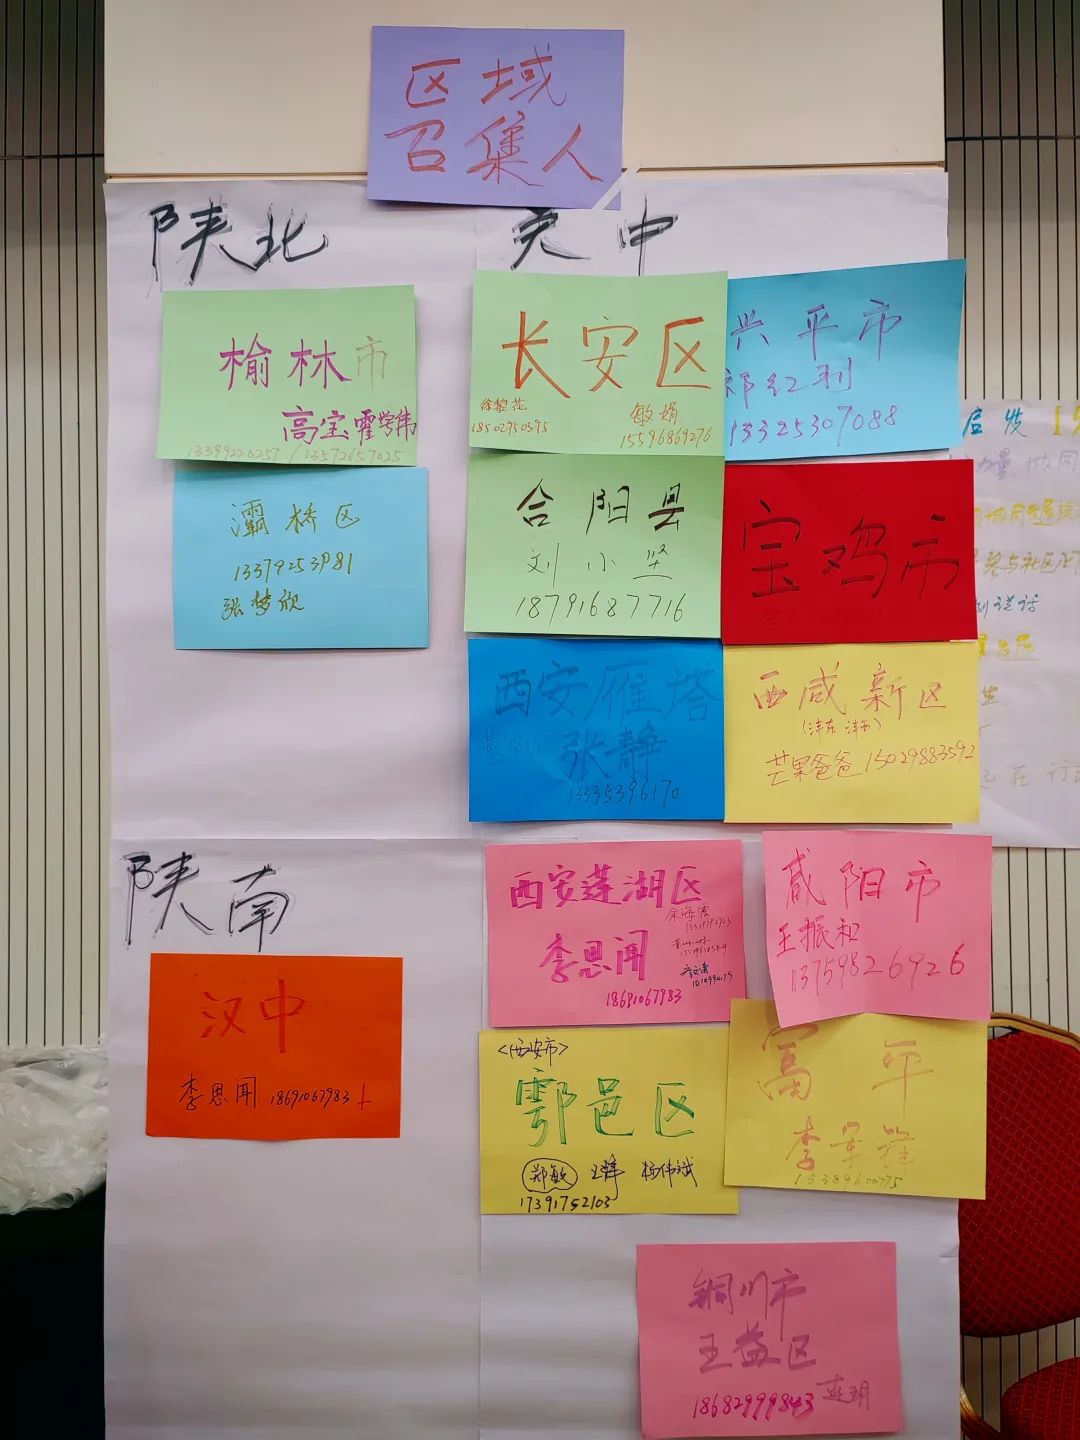 区域
召集人
陕北
关中
榆林市
高宝霍学伟
灞桥区
13379253981
张梦欣
长安区
徐黎花
敏娟
18502950595
15596869276
兴平市
祁红利
13325307088
合阳县
刘小坚
18791687716
宝鸡市
西安雁塔
张静
13335396170
西咸新区
(沣东 沣西)
芒果爸爸 15029883592
陕南
汉中
李思闻 18691067983
西安莲湖区
李思闻
18691067983
咸阳市
王振和
13759826926
<西安市>
鄠邑区
郑敏 王辉 杨伟斌
17391752103
富平
铜川市
王益区
18682999843
启发